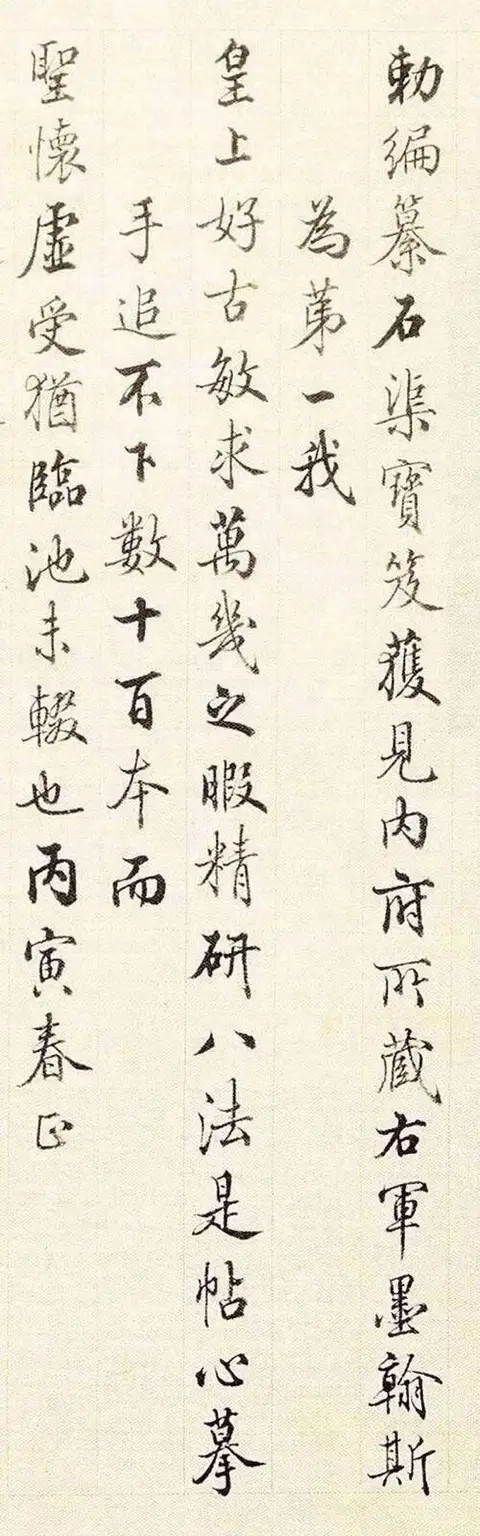 勅編纂石渠寶笈獲見内府所蔵右軍墨翰斯
為苐一我
皇上好古敏求萬幾之暇精研八法是帖心摹
手追不下數十百本而
聖懷虛受猶臨池未輟也丙寅春正